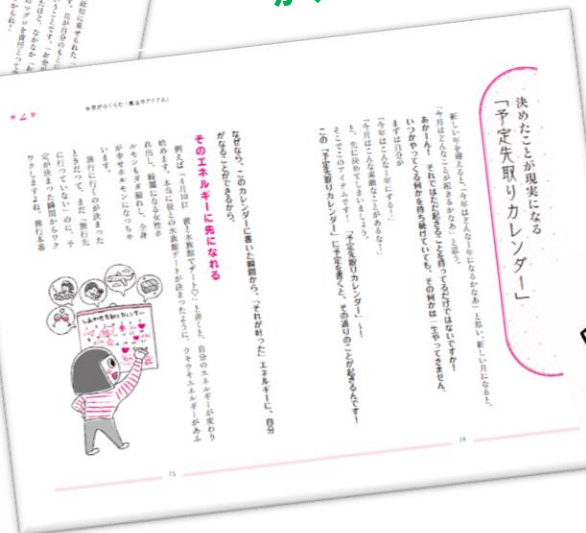 決めたことが現実になる
「予定先取りカレンダー」
新しい年を迎えると、「今年はどんな1年になるかなあ」と思い、新しい月になると、
「今月はどんなことが起きるかなあ」と思う。
あかーん！　それではただ起きることを待ってるだけではないですか！
いつかやってくる何かを待ち続けていても、その何かは一生やってきません。
まずは自分が
「今年はこんな1年にする！」
「今月はこんな素敵なことがあるな！」
と、先に決めてしまいましょう。
そこでこのアイテムです！　「予定先取りカレンダー」〜！
この「予定先取りカレンダー」に予定を書くと、その通りのことが起きるんです！
74
なぜなら、このカレンダーに書いた瞬間から、「それが叶った」エネルギーに、自分
がなることができるから。
そのエネルギーに先になれる
例えば「4月10日　彼と水族館でデート♡」と書くと、自分のエネルギーが変わり
始めます。本当に彼との水族館デートが決まったように、ウキウキエネルギーがあふ
れ出し、綺麗になる女性ホ
ルモンもダダ漏れし、全身
が幸せホルモンになっちゃ
います。
旅行に行くのが決まった
ときだって、まだ「旅行先
に行っていない」のに、予
定が決まった瞬間からワク
ワクしますよね。旅行本番
しあわせ先取りカレンダー
75